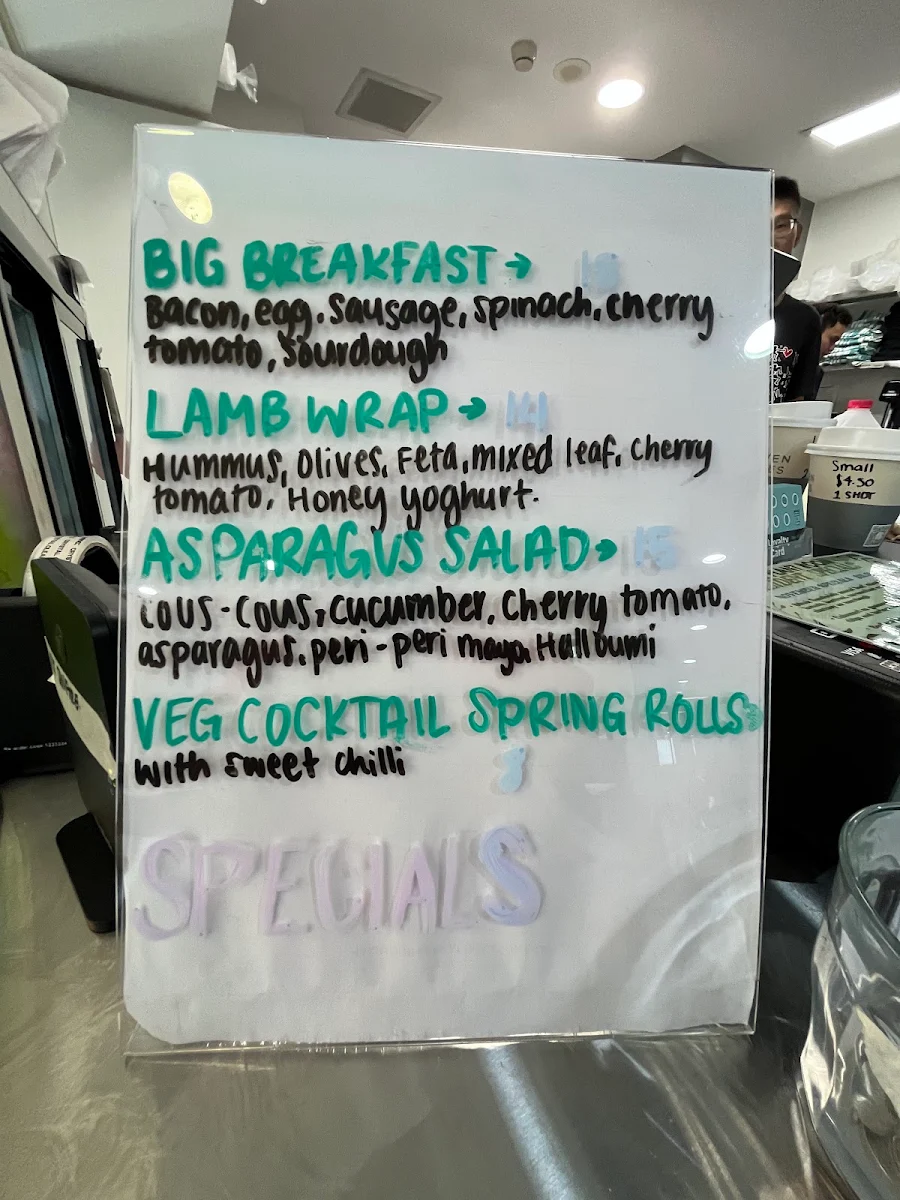 BIG BREAKFAST →
Bacon, egg, Sausage, spinach, cherry
tomato, Sourdough
LAMB WRAP → 14
Hummus, Olives, Feta, mixed leaf, cherry
tomato, Honey yoghurt.
ASPARAGUS SALAD → 15
COUS-COUS, cucumber, cherry tomato,
asparagus, peri-peri mayo, Halloumi
VEG COCKTAIL SPRING ROLLS
with sweet chilli
SPECIALS
Small
$4.50
1 SHOT